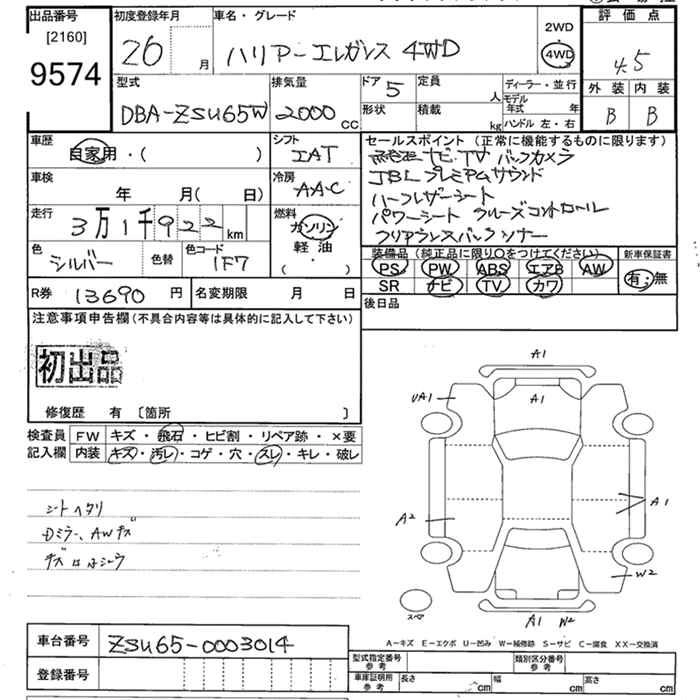 出品番号
[2160]
9574
初度登録年月
26 月
車名・グレード
ハリアー エレガンス 4WD
2WD
4WD
評価点
4.5
外装 内装
B B
型式
DBA-ZSU65W
排気量
2000 cc
ドア 5
定員 人
形状
積載 kg
ディーラー・並行
モデル年式 年
ハンドル 左・右
車歴
自家用・( )
シフト
IAT
車検
年 月( 日)
冷房
AAC
走行
3万1千922 km
燃料
ガソリン
軽油
( )
色
シルバー
色替
色コード
1F7
セールスポイント (正常に機能するものに限ります)
ナビ TV バックカメラ
JBL プレミアムサウンド
ハーフレザーシート
パワーシート クルーズコントロール
クリアランスバックソナー
装備品 (純正品に限り○をつけてください)
新車保証書
PS PW ABS エアB AW
SR ナビ TV カワ
有・無
R券 13690 円
名変期限 月 日
後日品
注意事項申告欄 (不具合内容等は具体的に記入して下さい)
初出品
修復歴 有 〔箇所 〕
検査員記入欄
FW キズ・飛石・ヒビ割・リペア跡・×要
内装 キズ・汚レ・コゲ・穴・スレ・キレ・破レ
シートヘタリ
Dミラー、AWキズ
A1
A1
UA1
A2
A1
W2
A1 W2
スペア
A−キズ E−エクボ U−凹み W−補修跡 S−サビ C−腐食 XX−交換済
車台番号 ZSU65-0003014
登録番号
型式指定番号 参考
類別区分番号 参考
車庫証明用 参考
長さ cm
幅 cm
高さ cm